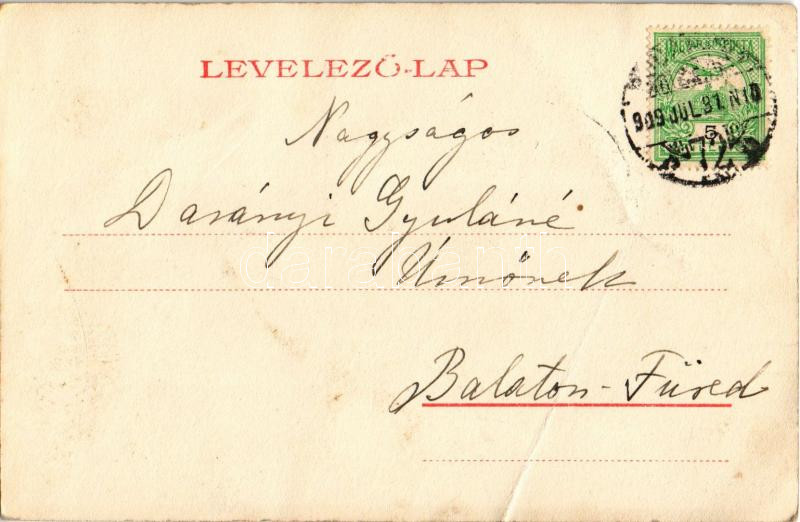 MAGYAR POSTA
LEVELEZŐ-LAP
909 JUL. 31. N10
5
72
Nagyságos
Darányi Gyuláné
Úrnőnek
Balaton-Füred